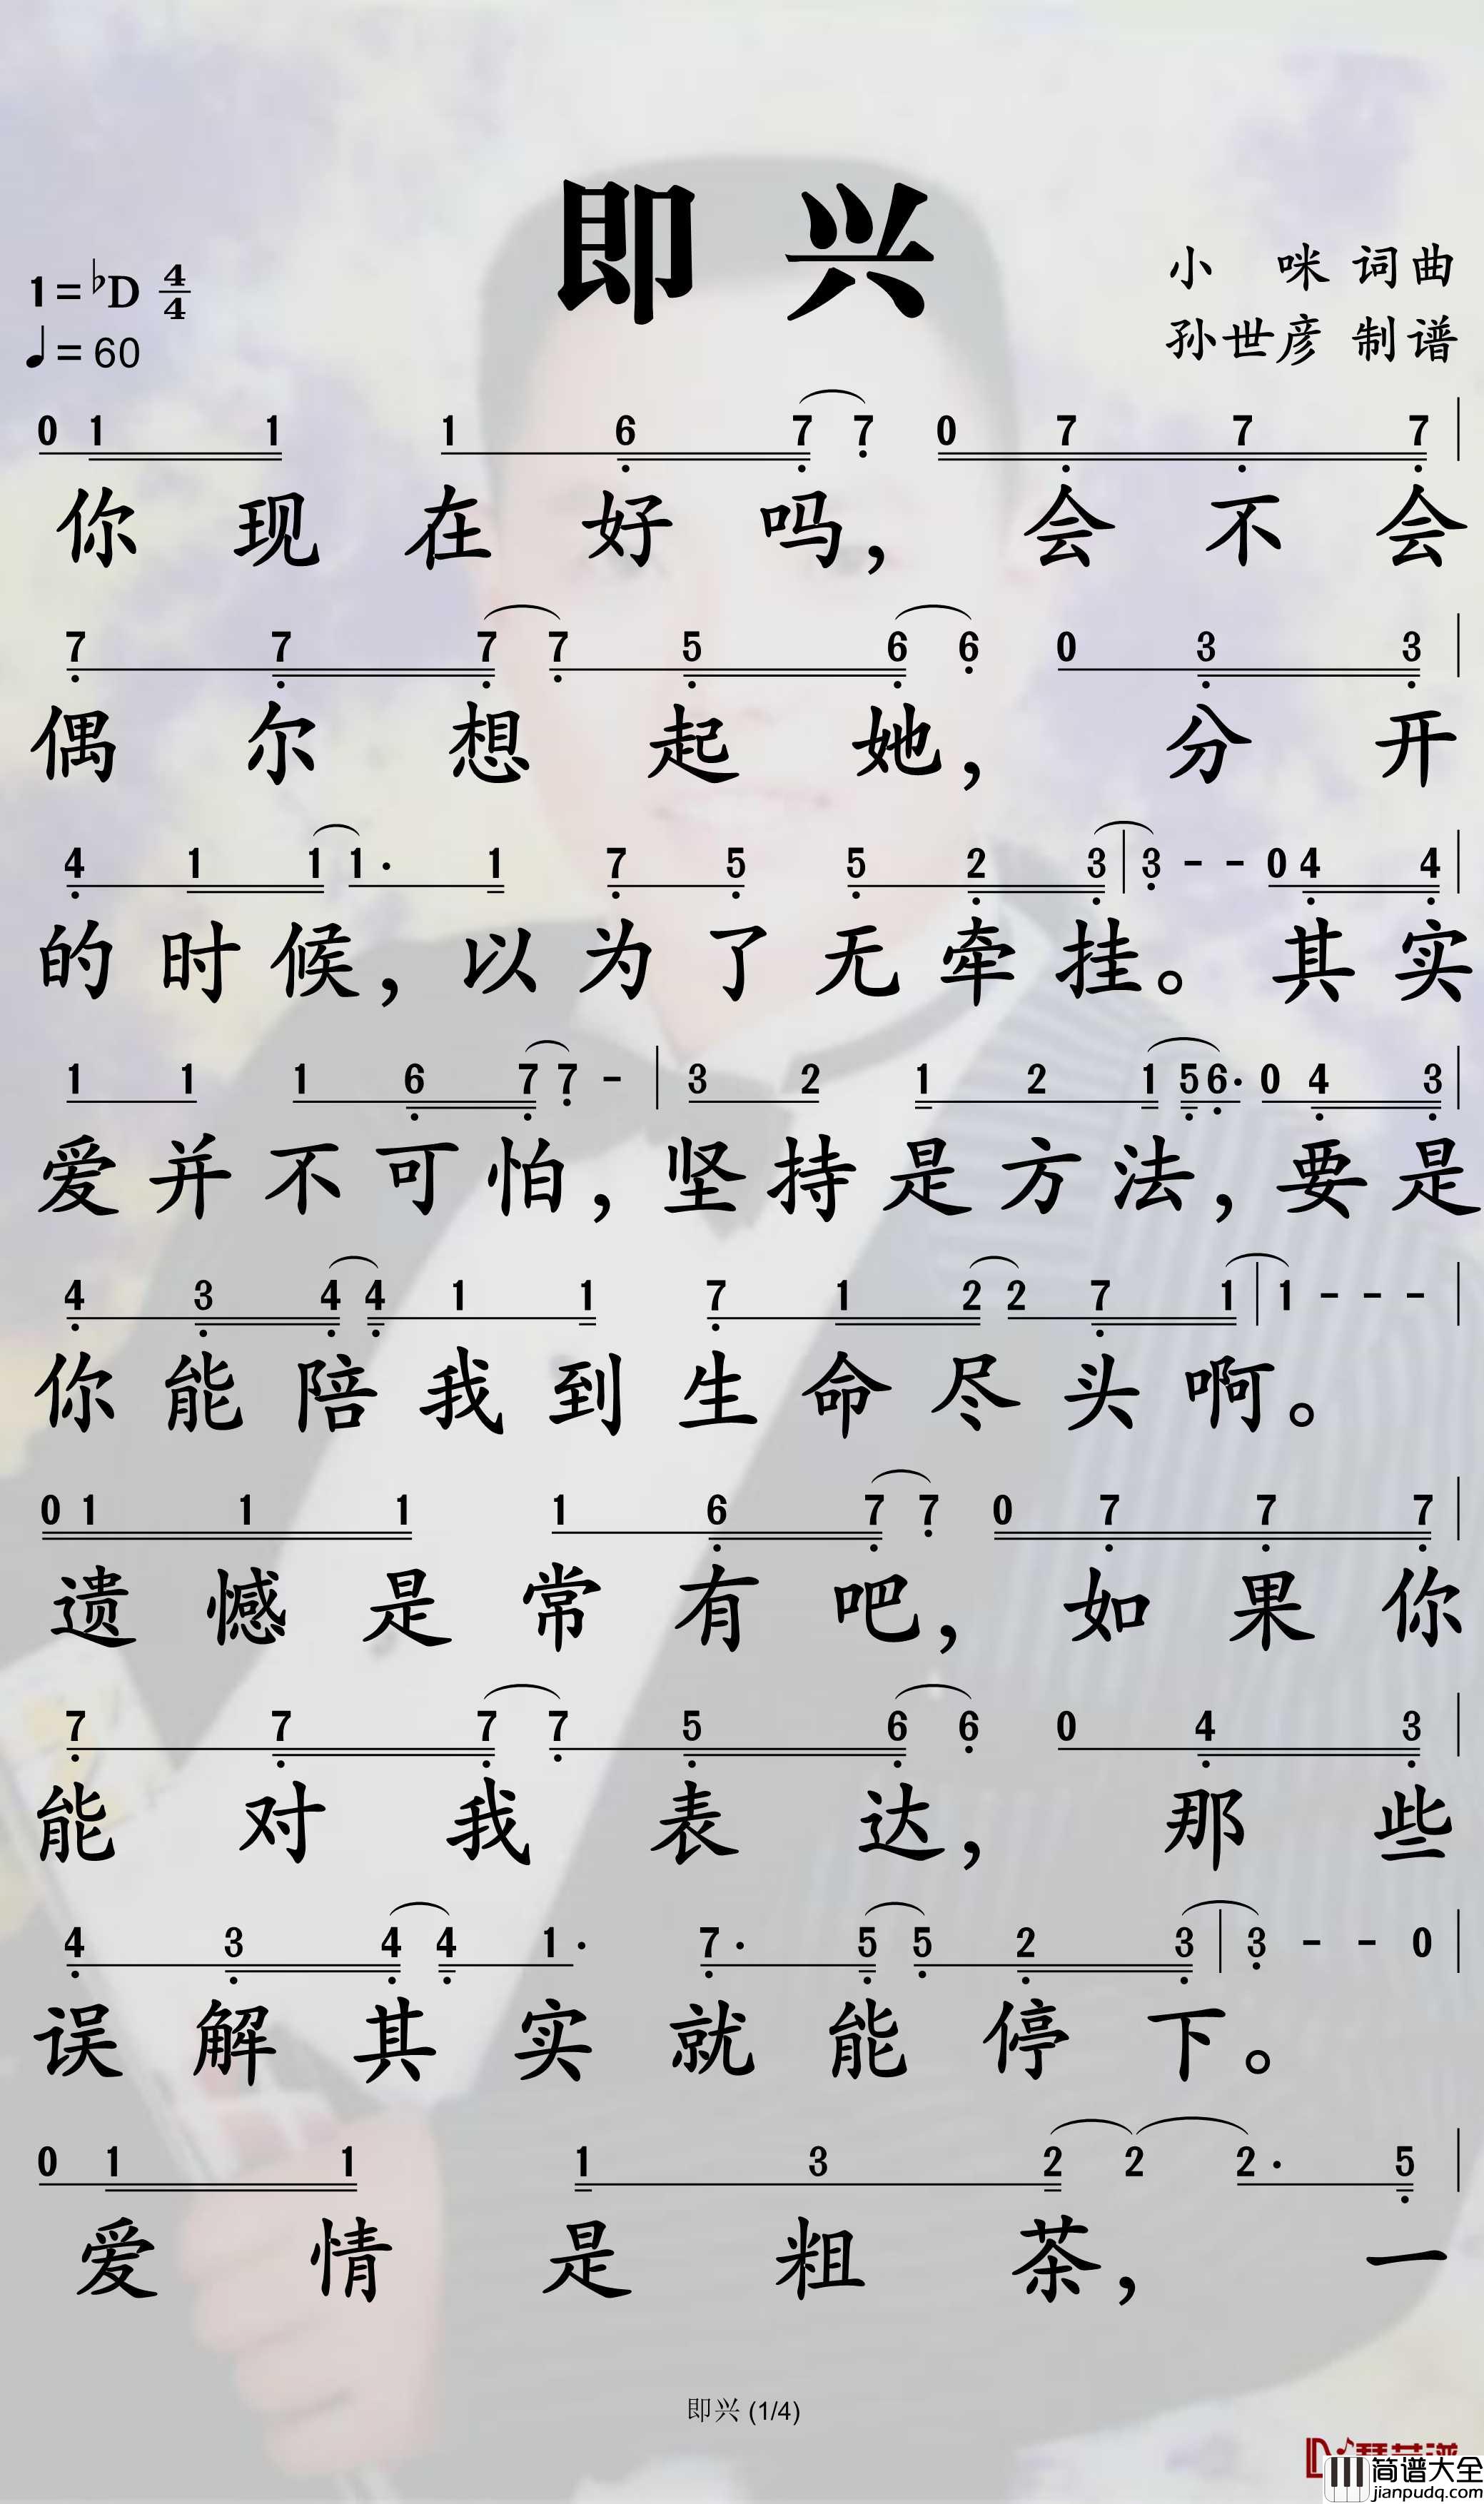 即兴
1=♭D 4/4
♩=60
小咪 词曲
孙世彦 制谱
0 1 1 1 6 7 7 0 7 7 7 |
你现在好吗，会不会
7 7 7 7 5 6 6 0 3 3 |
偶尔想起她，分开
4 1 1 1· 1 7 5 5 2 3 | 3 - - 0 4 4 |
的时候，以为了无牵挂。其实
1 1 1 6 7 7 - | 3 2 1 2 1 5 6· 0 4 3 |
爱并不可怕，坚持是方法，要是
4 3 4 4 1 1 7 1 2 2 7 1 | 1 - - - |
你能陪我到生命尽头啊。
0 1 1 1 1 6 7 7 0 7 7 7 |
遗憾是常有吧，如果你
7 7 7 7 5 6 6 0 4 3 |
能对我表达，那些
4 3 4 4 1· 7· 5 5 2 3 | 3 - - 0 |
误解其实就能停下。
0 1 1 1 3 2 2 2· 5 |
爱情是粗茶，一
即兴 (1/4)
简谱大全
jianpudq.com